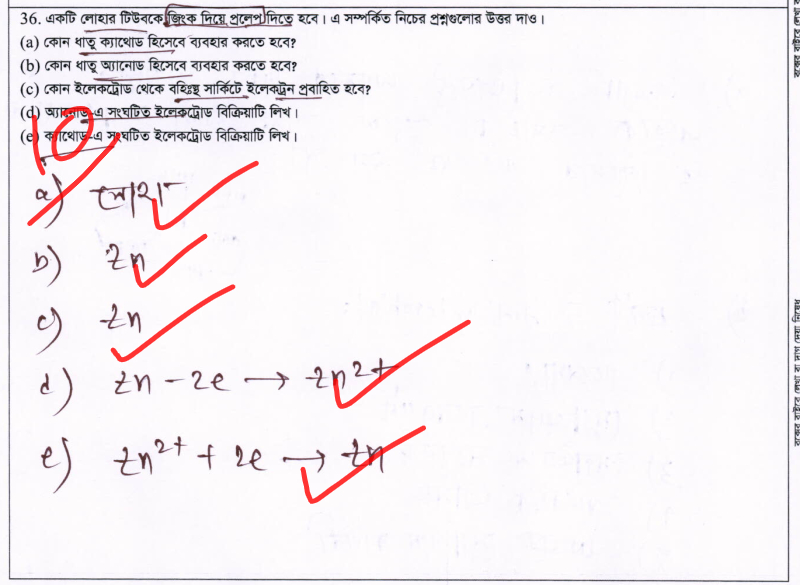 36. একটি লোহার টিউবকে জিংক দিয়ে প্রলেপ দিতে হবে। এ সম্পর্কিত নিচের প্রশ্নগুলোর উত্তর দাও।
(a) কোন ধাতু ক্যাথোড হিসেবে ব্যবহার করতে হবে?
(b) কোন ধাতু অ্যানোড হিসেবে ব্যবহার করতে হবে?
(c) কোন ইলেকট্রোড থেকে বহিঃস্থ সার্কিটে ইলেকট্রন প্রবাহিত হবে?
(d) অ্যানোড-এ সংঘটিত ইলেকট্রোড বিক্রিয়াটি লিখ।
(e) ক্যাথোড-এ সংঘটিত ইলেকট্রোড বিক্রিয়াটি লিখ।
10
a) লোহা
b) Zn
c) Zn
d) Zn - 2e → Zn²⁺
e) Zn²⁺ + 2e → Zn